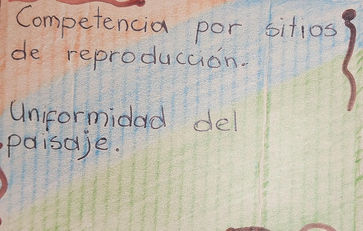 Competencia por sitios
de reproducción.
Uniformidad del
paisaje.